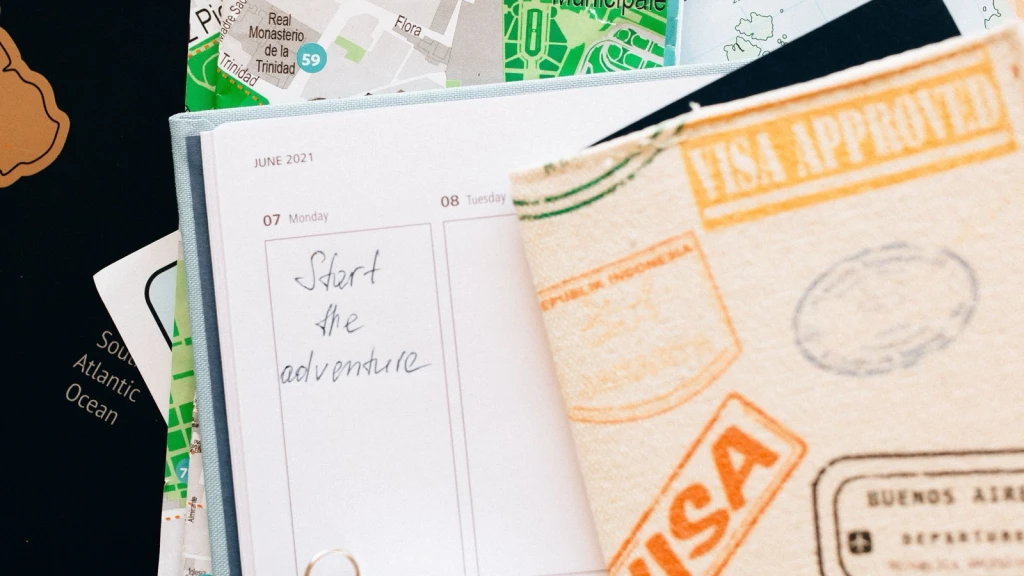 Real
Monasterio
de la
Trinidad
59
Trinidad
Flora
Municipale
JUNE 2021
07 Monday
08 Tuesday
Start
the
adventure
Atlantic
Ocean
7
VISA APPROVED
EPUBLIK INDONESIA
VISA
BUENOS AIRE
DEPARTURE